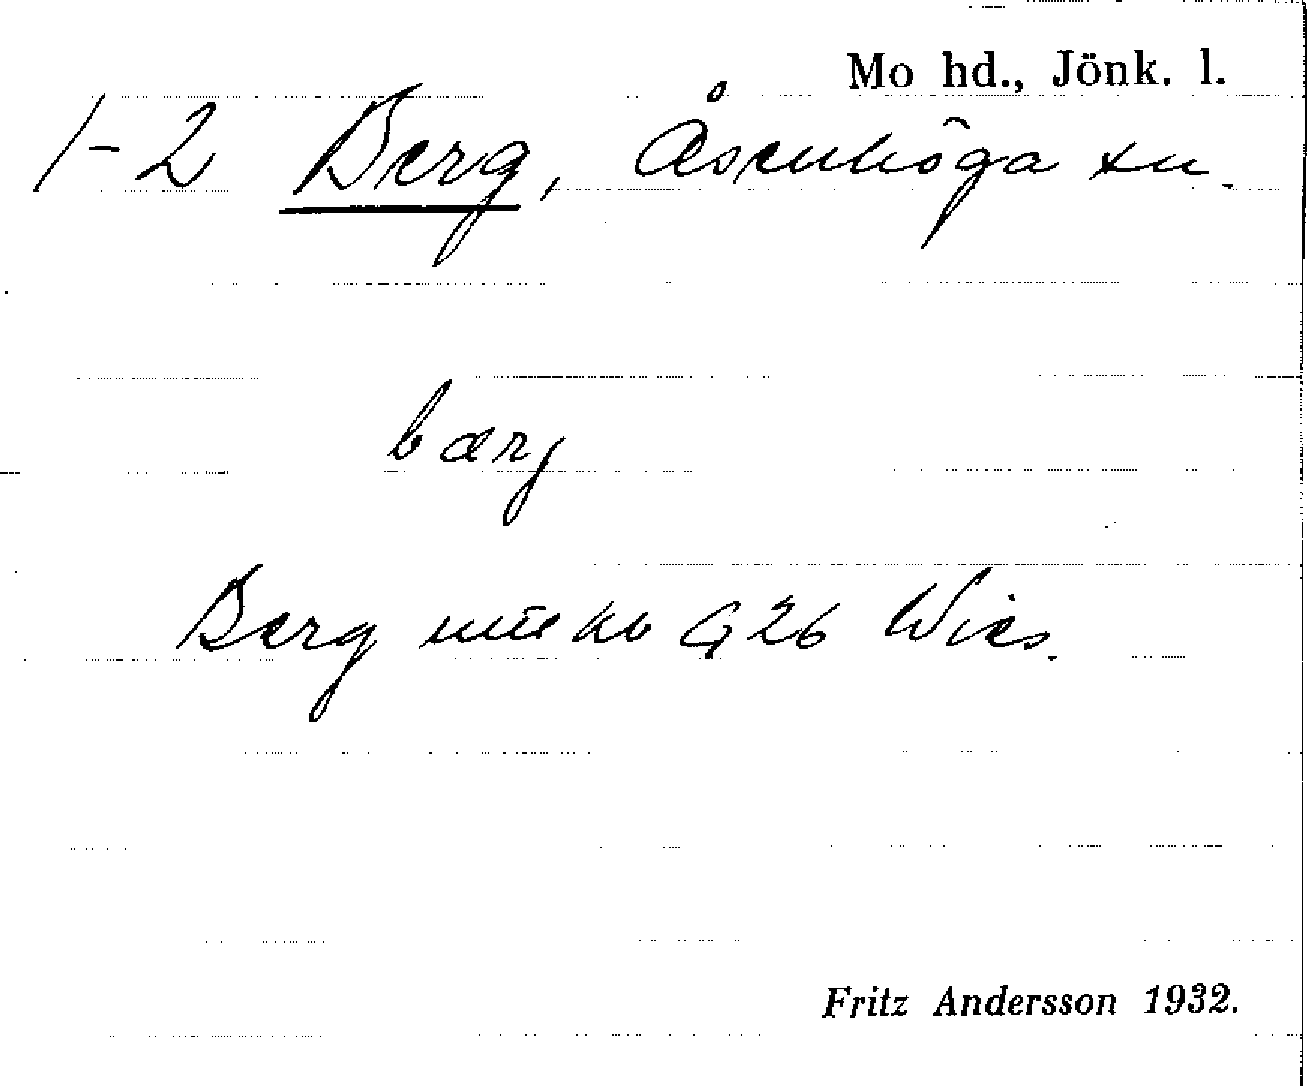 Mo hd., Jönk. l.
1-2 Berg, Åsenhöga sn.
bærj
Berg G 26 Wies.
Fritz Andersson 1932.